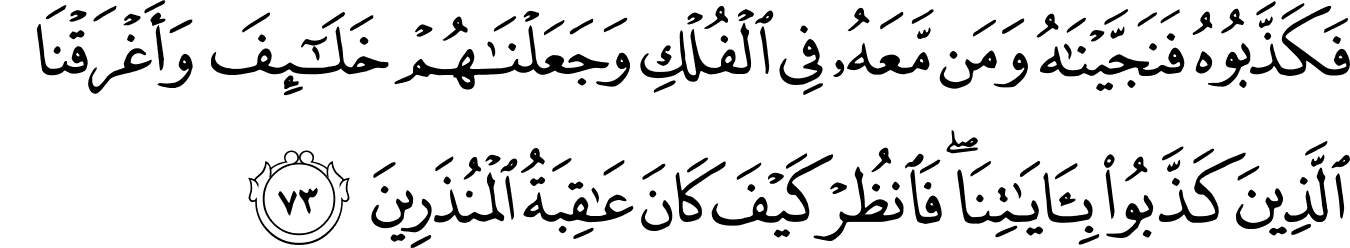 فَكَذَّبُوهُ فَنَجَّيْنَٰهُ وَمَن مَّعَهُۥ فِى ٱلْفُلْكِ وَجَعَلْنَٰهُمْ خَلَٰٓئِفَ وَأَغْرَقْنَا
ٱلَّذِينَ كَذَّبُوا۟ بِـَٔايَٰتِنَا ۖ فَٱنظُرْ كَيْفَ كَانَ عَٰقِبَةُ ٱلْمُنذَرِينَ ٧٣